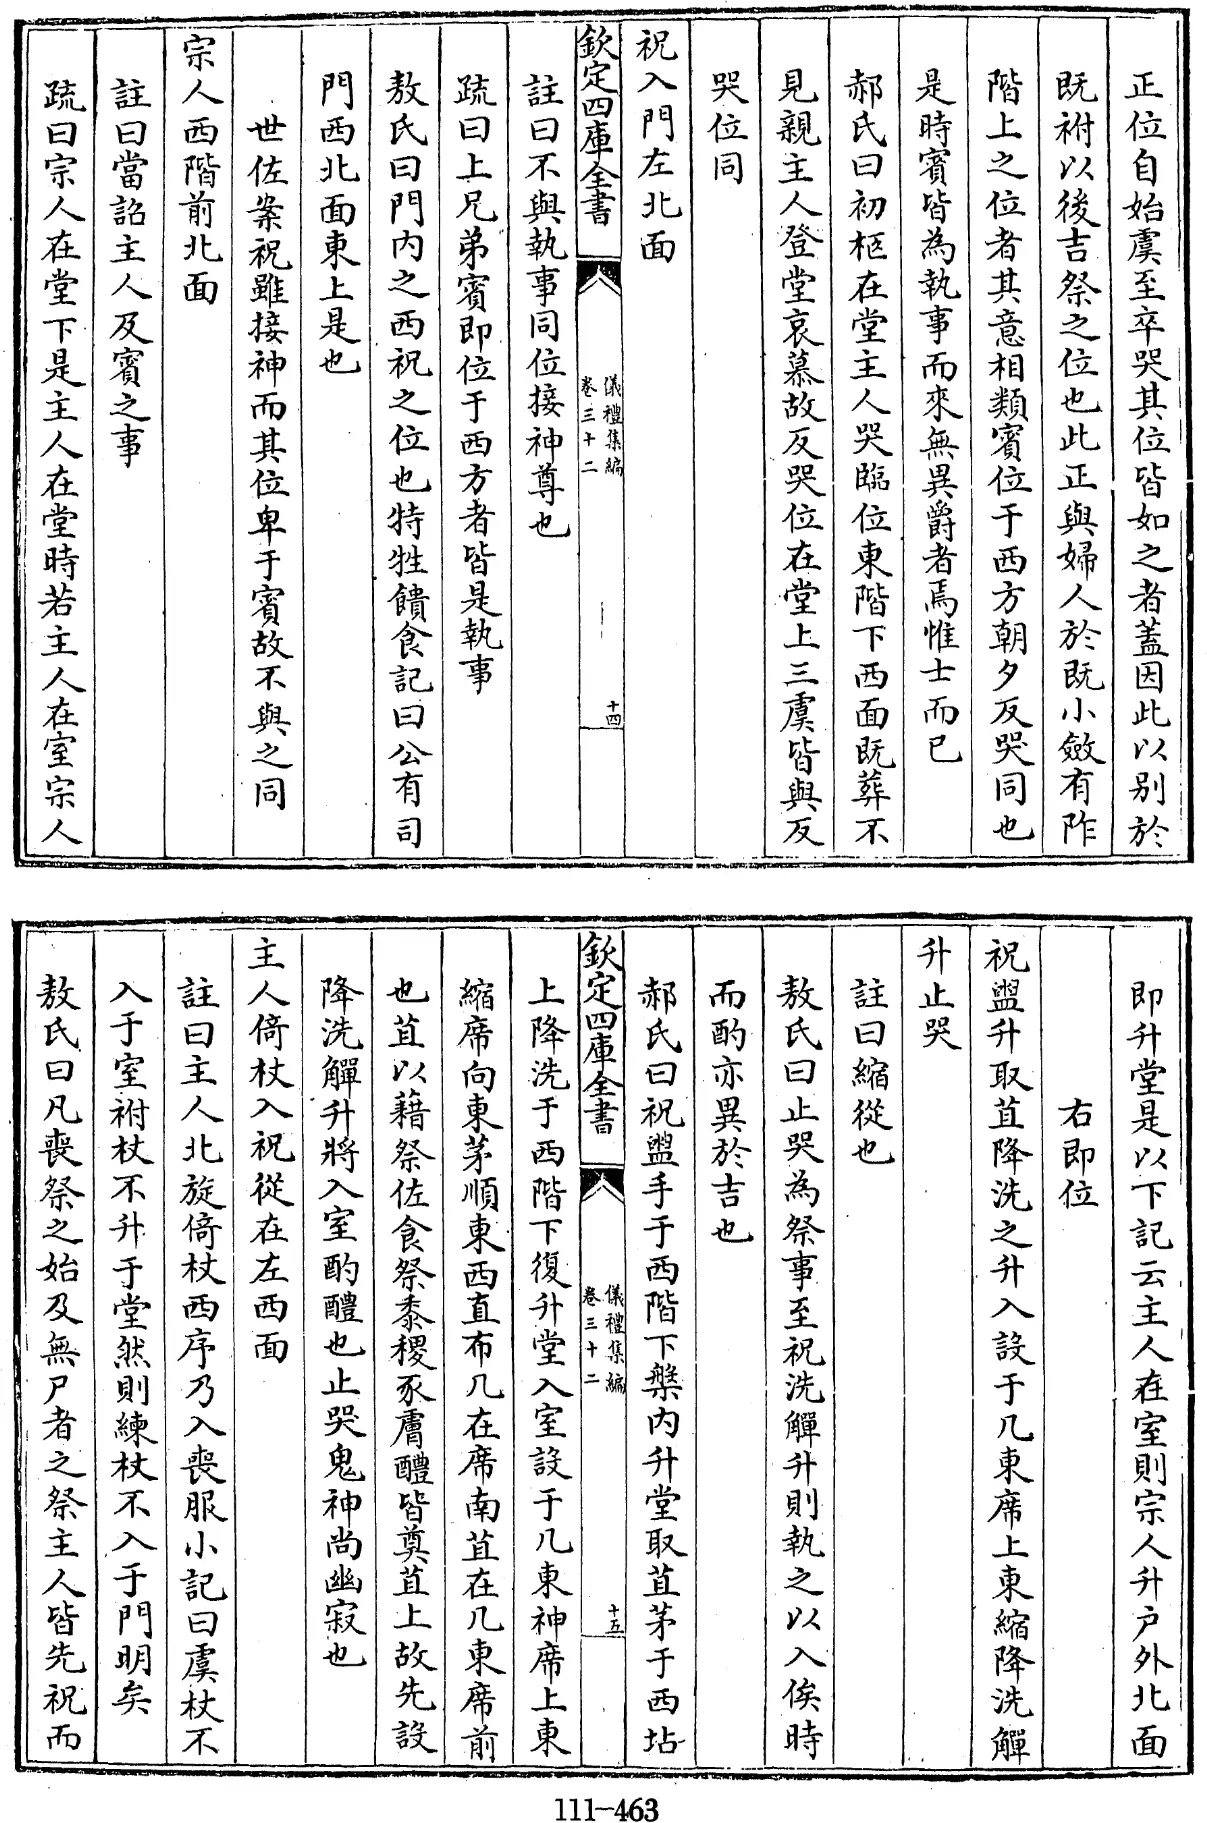 正位自始虞至卒哭其位皆如之者蓋因此以别於
既祔以後吉祭之位也此正與婦人於既小斂有阼
階上之位者其意相類賓位于西方朝夕反哭同也
是時賓皆為執事而來無異爵者焉惟士而已
郝氏曰初柩在堂主人哭臨位東階下西面既葬不
見親主人登堂哀慕故反哭位在堂上三虞皆與反
哭位同
祝入門左北面
欽定四庫全書
儀禮集編
卷三十二
十四
註曰不與執事同位接神尊也
疏曰上兄弟賓即位于西方者皆是執事
敖氏曰門内之西祝之位也特牲饋食記曰公有司
門西北面東上是也
世佐案祝雖接神而其位卑于賓故不與之同
宗人西階前北面
註曰當詔主人及賓之事
疏曰宗人在堂下是主人在堂時若主人在室宗人
即升堂是以下記云主人在室則宗人升户外北面
右即位
祝盥升取苴降洗之升入設于几東席上東縮降洗觶
升止哭
註曰縮從也
敖氏曰止哭為祭事至祝洗觶升則執之以入俟時
而酌亦異於吉也
郝氏曰祝盥手于西階下槃内升堂取苴茅于西坫
欽定四庫全書
儀禮集編
卷三十二
十五
上降洗于西階下復升堂入室設于几東神席上東
縮席向東茅順東西直布几在席南苴在几東席前
也苴以藉祭佐食祭黍稷豕膚醴皆奠苴上故先設
降洗觶升將入室酌醴也止哭鬼神尚幽寂也
主人倚杖入祝從在左西面
註曰主人北旋倚杖西序乃入喪服小記曰虞杖不
入于室祔杖不升于堂然則練杖不入于門明矣
敖氏曰凡喪祭之始及無尸者之祭主人皆先祝而
111-463